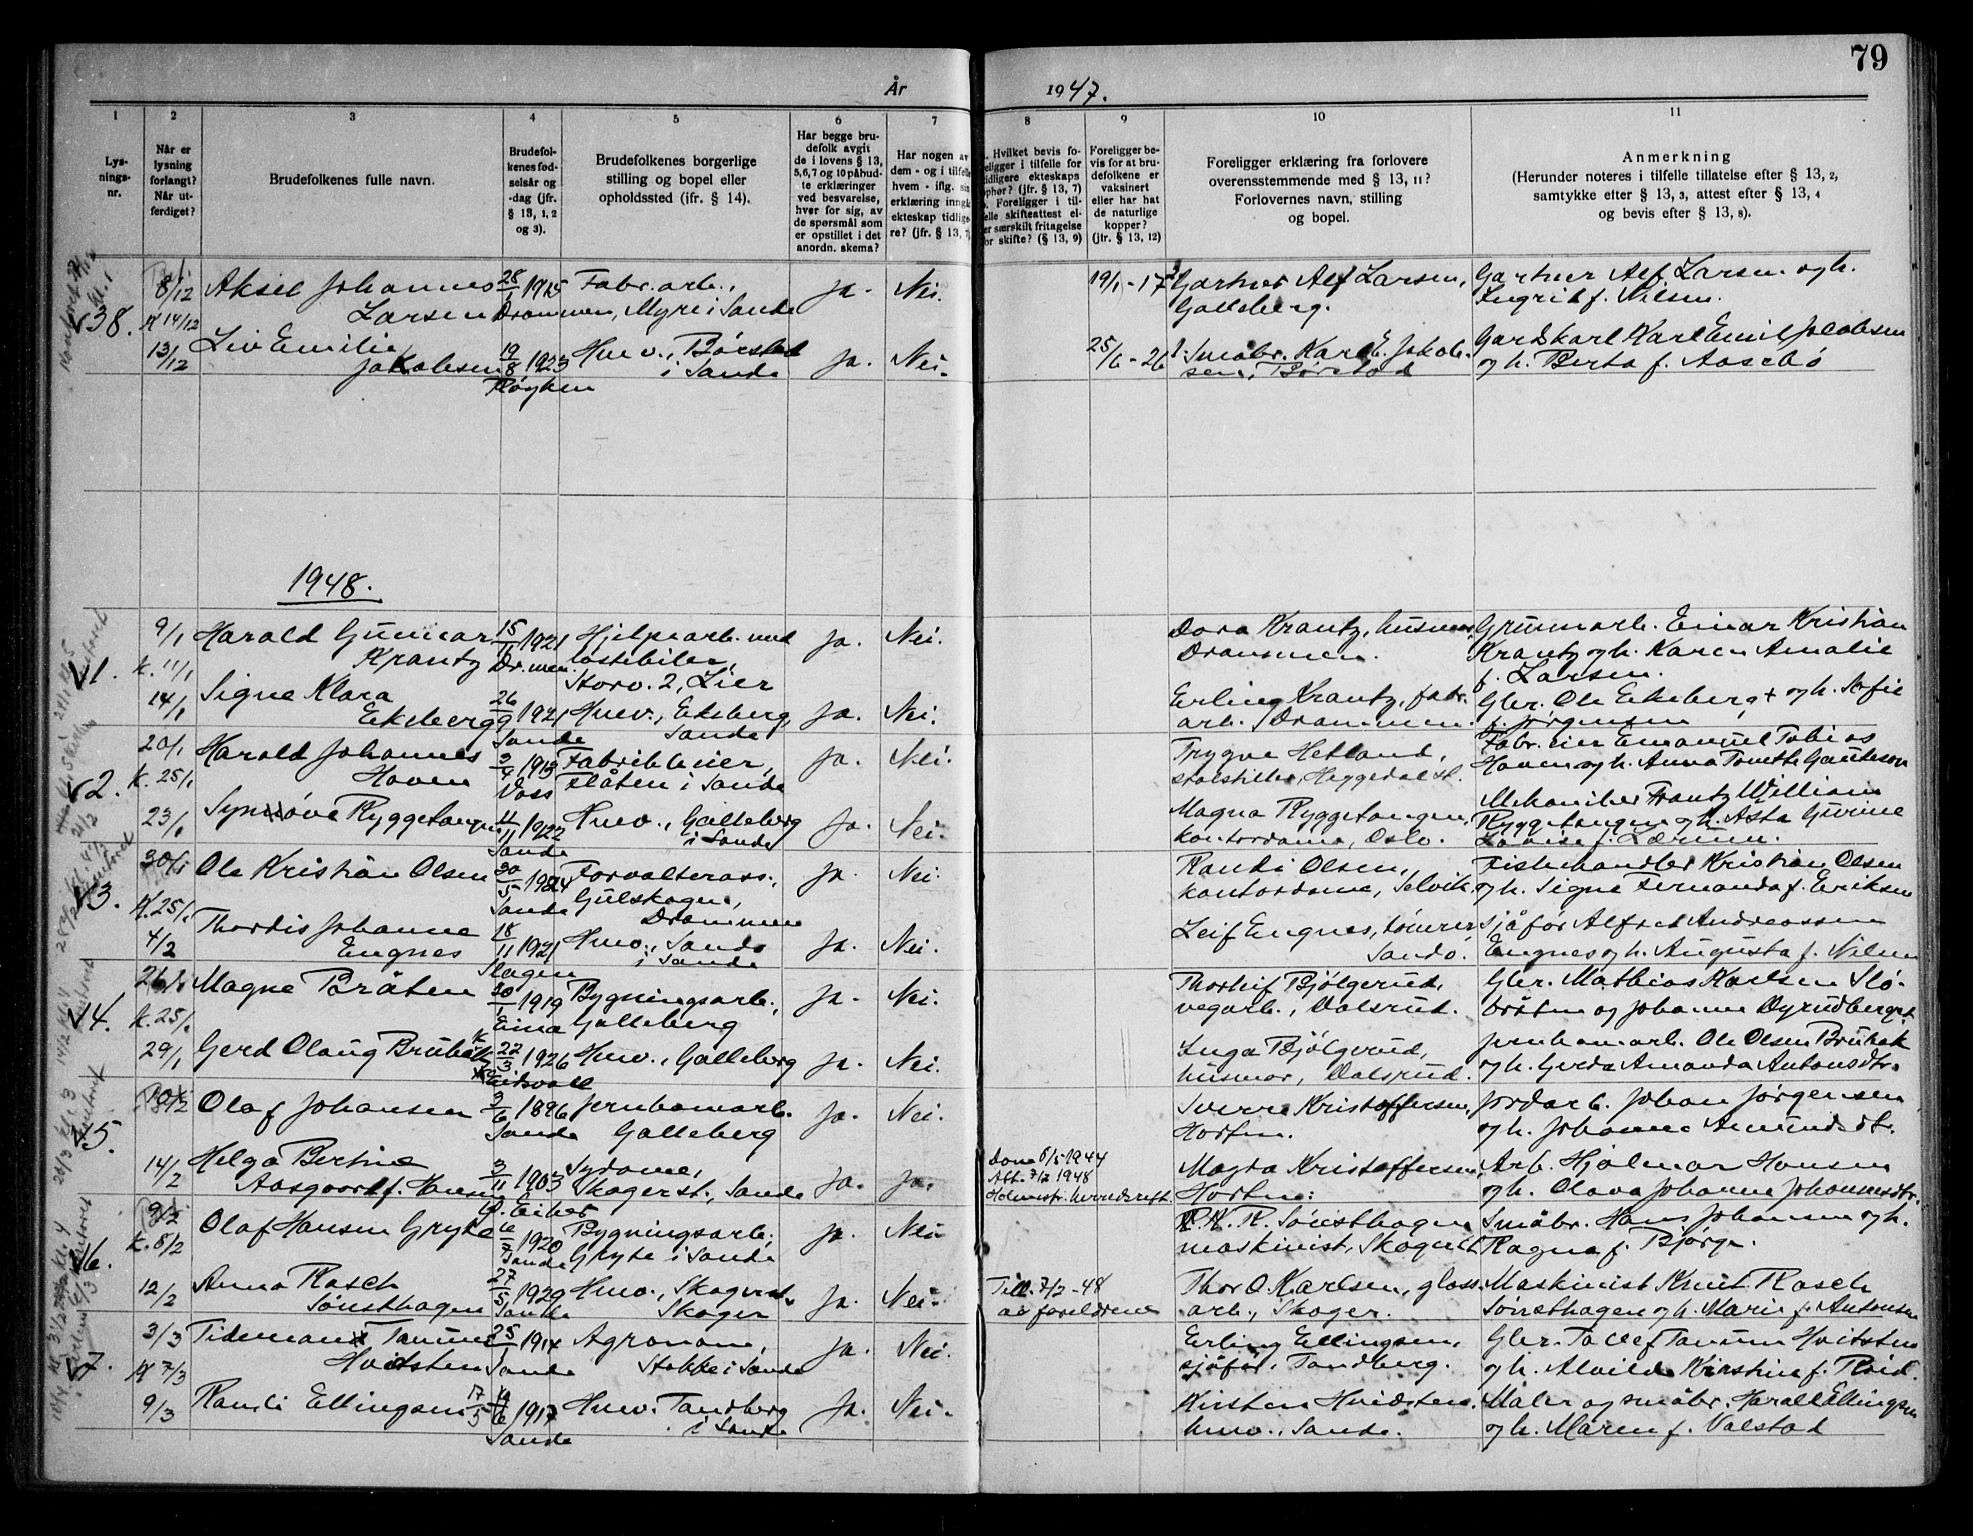 79
År 1947.
1 2 3 4 5 6 7 8 9 10 11
Lys-
nings-
nr.
Når er
lysning
forlangt?
Når ut-
ferdiget?
Brudefolkenes fulle navn.
Brudefol-
kenes fød-
selsår og
-dag (jfr.
§ 13, 1, 2
og 3).
Brudefolkenes borgerlige
stilling og bopel eller
opholdssted (ifr. § 14).
Har begge bru-
defolk avgit
de i lovens § 13,
5,6,7 og 10 påbud-
te erklæringer
ved besvarelse,
hver for sig, av
de spørsmål som
er opstillet i det
anordn. skema?
Har nogen av
dem - og i tilfelle
hvem - iflg. sin
erklæring inngå
ekteskap tidlige-
re? (jfr. § 13, 7)
Hvilket bevis fo-
religger i tilfelle for
tidligere ekteskaps
ophør? (jfr. § 13, 7)
Foreligger i til-
felle skifteattest el-
er særskilt fritagelse
for skifte? (§ 13, 9)
Foreligger be-
vis for at bru-
defolkene er
vaksinert
eller har hat
de naturlige
kopper?
(jfr. § 13, 12)
Foreligger erklæring fra forlovere
overensstemmende med § 13, 11?
Forlovernes navn, stilling
og bopel.
Anmerkning
(Herunder noteres i tilfelle tillatelse efter § 13, 2,
samtykke efter § 13, 3, attest efter § 13, 4
og bevis efter § 13, 8).
38.
8/12 Aksel Johannes 28/1 1915 Fabr. arb., Ja. Nei. 19/1-17 Gartner Alf Larsen, Gartner Alf. Larsen og h.
K 14/12 Larsen Drammen, Myre i Sande Galleberg. Ingrid f. Nilsen.
13/12 Liv Emilie
Jakobsen 19/8 1923 Hmv., Børstad Ja. Nei. 25/6-26 Småbr. Karl E. Jakob- Gardskarl Karl Emil Jacobsen
Røyken i Sande sen, Børstad og h. Berta f. Aasebö
1948.
1.
9/1 Harald Gunnar 15/11 1921 Hjelpearb. med Ja. Nei. Dora Krantz, husmor, Grunnarb. Einar Kristian
K. 11/1 Krantz Dr.men. lastebiler, Drammen. Krantz og h. Karen Amalie
Storv. 2, Lier f. Larsen.
14/1 Signe Klara
Ekeberg 26/9 1921 Hmv., Ekeberg, Ja. Nei. Erling Krantz, fabr. Gbr. Ole Ekeberg + og h. Sofie
Sande Sande arb. Drammen. f. Jørgensen
2.
20/1 Harald Johannes 3/4 1913 Fabrikkeier, Ja. Nei. Trygve Hetland, Fabr.eier Emanuel Tobias
K. 25/1 Hoven Voss Flåten i Sande Heggedal st. Hoven og h. Anna Tonette Gauteson
23/1 Synnöve Ryggetangen 11/11 1922 Hmv., Galleberg Ja. Nei. Magna Ryggetangen, Mekaniker Frantz William
Sande i Sande kontordame, Oslo. Ryggetangen og h. Asta Gurine
Lovise f. Lærum.
3.
30/1 Ole Kristian Olsen 30/5 1924 Forvalterass., Ja. Nei. Randi Olsen, Fiskehandler Kristian Olsen
K. 25/1 Sande Gulskogen, kontordame, Selvik. og h. Signe Fernanda f. Eriksen
Drammen
4/2 Thordis Johanne
Engnes 18/11 1921 Hmv., Sandö Ja. Nei. Leif Engnes, tömrer Sjåför Alfred Andreassen
Slagen i Sande Sandö. Engnes og h. Augusta f. Nilsen
4.
26/1 Magne Bråten 30/1 1919 Bygningsarb., Ja. Nei. Thorleif Bjölgerud, Gbr. Mathias Karlsen Slo-
K. 25/1 Eina Galleberg vegarb., Dalsrud. bråten og Johanne Dyrudberget
29/1 Gerd Olaug Brubakk 22/3 1926 Hmv., Galleberg Ja. Nei. Inga Bjölgerud, Jernbanearb. Ole Olsen Brubak
Eidsvoll husmor, Dalsrud. og h. Gerda Amanda Antonsdtr.
5.
Olaf Johansen 3/6 1896 Jernbanearb. Ja. Nei. Sverre Kristoffersen, Jordarb. Johan Jørgensen
Sande Galleberg Horten. og h. Johanne Amundsdtr.
14/2 Helga Bertine
Aasgaard f. Hansen 3/11 1903 Sydame, Ja. Ja. Dom 6/5 1944 Magda Kristoffersen, Arb. Hjalmar Hansen
Ø. Eiker Skoger st., Sande Att. 7/2 1948 Horten. og h. Olava Johanne Johannesdtr.
Holmestr. herredsrett.
6.
9/2 Olaf Hansen Gryte 6/7 1920 Bygningsarb., Ja. Nei. R. Sönsthagen Småbr. Hans Johansen og h.
K. 8/2 Sande Gryte i Sande maskinist, Skoger st. Ragna f. Bjørge.
12/2 Anna Rasch
Sönsthagen 27/5 1929 Hmv., Skoger st. Ja. Nei. Till. 7/2-48 Thor O. Karlsen, glass- Maskinist Knut Rasch
Sande Skoger av foreldrene arb., Skoger. Sönsthagen og h. Marie f. Antonsen
7.
3/3 Tideman Tanum 25/5 1914 Agronom, Ja. Nei. Erling Ellingsen, Gbr. Tollef Tanum Hvitsten
K 7/3 Hvidsten Sande Stokke i Sande sjåför, Tandberg. og h. Alvilde Kirstine f. Röed.
9/3 Randi Ellingsen 17/5 1917 Hmv. Tandberg Ja. Nei. Kirsten Hvidsten, Maler og småbr. Harald Ellingsen
Sande i Sande hmv., Sande. og h. Maren f. Valstad